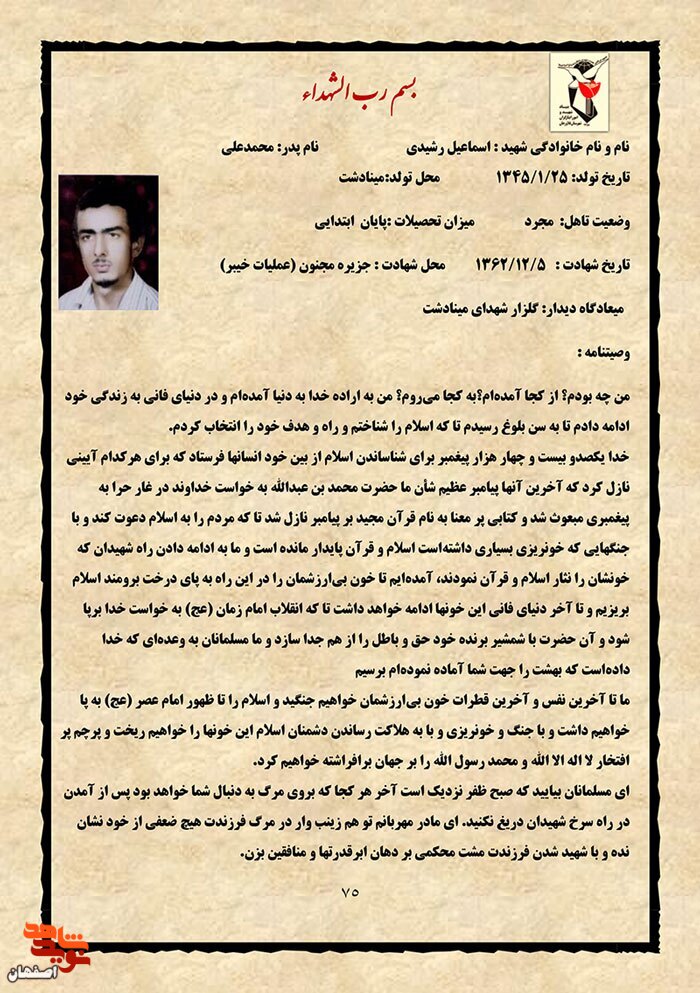 بسم رب الشهداء
نام و نام خانوادگی شهید : اسماعیل رشیدی نام پدر: محمدعلی
تاریخ تولد: ۱۳۴۵/۱/۲۵ محل تولد:مینادشت
وضعیت تاهل: مجرد میزان تحصیلات :پایان ابتدایی
تاریخ شهادت : ۱۳۶۲/۱۲/۵ محل شهادت : جزیره مجنون (عملیات خیبر)
میعادگاه دیدار: گلزار شهدای مینادشت
وصیتنامه :
من چه بودم؟ از کجا آمده‌ام؟به کجا می‌روم؟ من به اراده خدا به دنیا آمده‌ام و در دنیای فانی به زندگی خود
ادامه دادم تا به سن بلوغ رسیدم تا که اسلام را شناختم و راه و هدف خود را انتخاب کردم.
خدا یکصدو بیست و چهار هزار پیغمبر برای شناساندن اسلام از بین خود انسانها فرستاد که برای هرکدام آیینی
نازل کرد که آخرین آنها پیامبر عظیم شأن ما حضرت محمد بن عبدالله به خواست خداوند در غار حرا به
پیغمبری مبعوث شد و کتابی پر معنا به نام قرآن مجید بر پیامبر نازل شد تا که مردم را به اسلام دعوت کند و با
جنگهایی که خونریزی بسیاری داشته‌است اسلام و قرآن پایدار مانده است و ما به ادامه دادن راه شهیدان که
خونشان را نثار اسلام و قرآن نمودند، آمده‌ایم تا خون بی‌ارزشمان را در این راه به پای درخت برومند اسلام
بریزیم و تا آخر دنیای فانی این خونها ادامه خواهد داشت تا که انقلاب امام زمان (عج) به خواست خدا برپا
شود و آن حضرت با شمشیر برنده خود حق و باطل را از هم جدا سازد و ما مسلمانان به وعده‌ای که خدا
داده‌است که بهشت را جهت شما آماده نموده‌ام برسیم
ما تا آخرین نفس و آخرین قطرات خون بی‌ارزشمان خواهیم جنگید و اسلام را تا ظهور امام عصر (عج) به پا
خواهیم داشت و با جنگ و خونریزی و با به هلاکت رساندن دشمنان اسلام این خونها را خواهیم ریخت و پرچم پر
افتخار لا اله الا الله و محمد رسول الله را بر جهان برافراشته خواهیم کرد.
ای مسلمانان بیایید که صبح ظفر نزدیک است آخر هر کجا که بروی مرگ به دنبال شما خواهد بود پس از آمدن
در راه سرخ شهیدان دریغ نکنید. ای مادر مهربانم تو هم زینب وار در مرگ فرزندت هیچ ضعفی از خود نشان
نده و با شهید شدن فرزندت مشت محکمی بر دهان ابرقدرتها و منافقین بزن.
۷۵
نوید شاهد
اصفهان